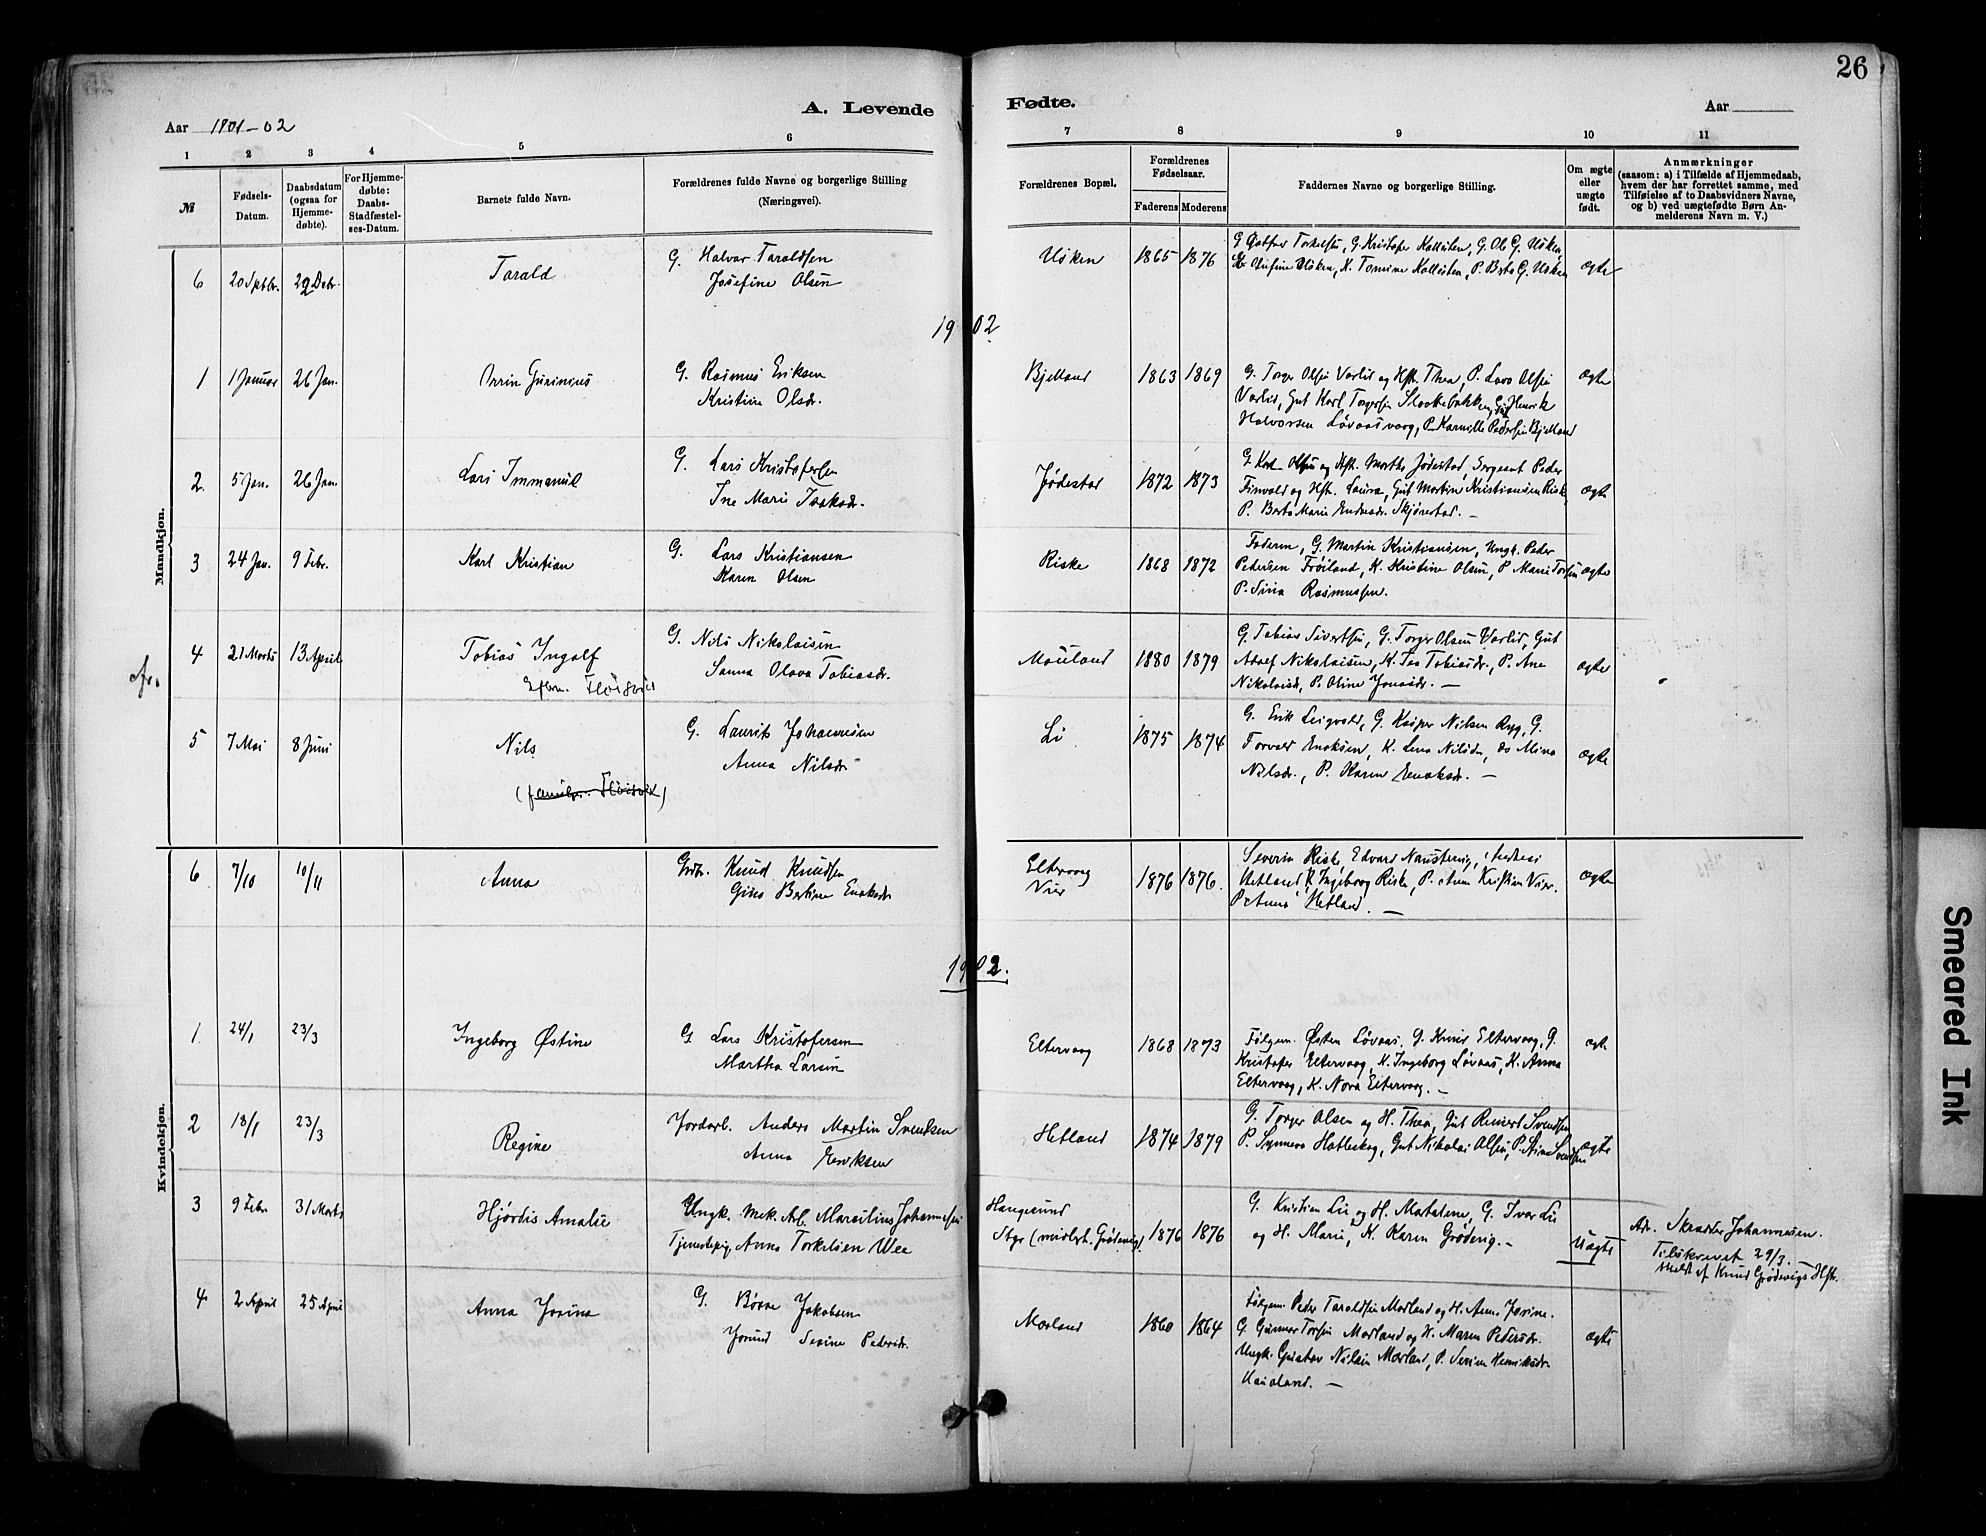 26
A. Levende Fødte.
Aar 1901-02
Aar
1 2 3 4 5 6 7 8 9 10 11
№
Fødsels-Datum.
Daabsdatum (ogsaa for Hjemmedøbte).
For Hjemmedøbte: Daabs-Stadfæstelses-Datum.
Barnets fulde Navn.
Forældrenes fulde Navne og borgerlige Stilling (Næringsvei).
Forældrenes Bopæl.
Forældrenes Fødselsaar.
Faderens Moderens
Faddernes Navne og borgerlige Stilling.
Om ægte eller uægte født.
Anmærkninger
(saasom: a) i Tilfælde af Hjemmedaab, hvem der har forrettet samme, med Tilføielse af to Daabsvidners Navne, og b) ved uægtefødte Børn Anmelderens Navn m. V.)
Mandkjøn.
6 20 Sptbr. 29 Debr. Tarald G. Halvar Taraldsen
Josefine Olsen
Usken 1865 1876 ægte
1902
1 1 Januar 26 Jan. G. Rasmus Eriksen
Kristine Olsdr.
Bjelland 1863 1869 G. Torger Olsen Varlid og Hst. Thea, P. Lava Olsen
Varlid, Gut Karl Torgersen Henrik
Halvorsen Løvaasvaag, P. Pedersen Bjelland
ægte
2. 5 Jan. 26 Jan. Lars Immanuel G. Lars Kristofersen
Ine Marie Isaksdr.
Jødestad 1872 1873 G. Olsen og Hst. Martha Jødestad, Sergeant Peder
Finvold og Hst. Laura, Gut Martin Kristiansen Riske
P. Berta Marie Endresdr. Skjørestad. —
ægte
3 24 Jan. 9 Febr. Karl Kristian G. Lars Kristiansen
Karen Olsen
Riske 1868 1872 Faderen, G. Martin Kristiansen, Ungk. Peder
Petersen Frøiland, K. Kristine Olsen, P. Marie
P. Sina Rasmussen.
ægte
4 21 Marts 13 April Tobias Ingolf
Efbn. Fløisvik
G. Nils Nikolaisen
Sanna Olava Tobiasdr.
Mauland 1880 1879 G. Tobias Sivertsen, G. Torger Olsen Varlid, Gut
Adolf Nikolaisen, K. Tea Tobiasdr., P. Ane
Nikolaisd, P. Oline Jonasdr. —
ægte
5 7 Mai 8 Juni Nils
(familn. Fløisvik)
G. Laurits Johannesen
Anna Nilsdr.
Li 1875 1874 G. Erik Leigvold, G. Kasper Nilsen Ryg, G.
Torvald Enoksen, K. Lena Nilsdr, do Mina
Nilsdr., P. Karen Enoksdr. —
ægte
Kvindekjøn.
6 7/10 10/11 Anna Knud Knudsen
Gina Bertine Enoksdr
Eltervaag
Vier
1876 1876. Severin Riske, Edvard
Hetland, K Ingeborg Riske, P. Kristian Vier.
P. Anna Hetland. —
ægte
1902.
1. 24/1 23/3 Ingeborg Østine G Lars Kristofersen
Martha Larsen
Eltervaag 1868 1873 Følgem. Østen Løvaas, G. Knud Eltervaag, G.
Kristofer Eltervaag, K. Ingeborg Løvaas, K. Anna
Eltervaag, K. Nora Eltervaag. —
ægt
2 18/1 23/3 Regine Jordarb. Anders Martin Svendsen
Anna Eriksen
Hetland 1874 1879 G. Torger Olsen og H. Thea, Gut Reinert Svendsen
P. Synneva Hatleskog, Gut Nikolai Olsen, P. Stina Svendsen
ægte
3 9 Febr 31 Marts Hjørdis Amalie Ungk. Mek. Arb. Marselius Johannesen
Tjenestepig Anna Torkelsen Wee
Haugesund
(midlert. Grødevig) 1876 1876 G. Kristian Lie og H. Martalene, G. Ivar Lie
og H. Marie, K. Karen Grødevig. —
Uægte
Adr. Skrædder Johannesen.
Tilskrevet 29/3. —
Meldt af Knud Grødevigs Hst.
4 2 April 25 April Anna Josina G. Børre Jakobsen
Jorund Sevine Pedersdr.
Morland 1860 1864 Følgem. Peder Taraldsen Morland og H. Anna Josine.
G. Gunnar Torsen Morland og H. Maren Pedersdr.
Ungk. Gustav Nilsen Morland, P. Serine Henriksdr.
ægte
Smeared Ink